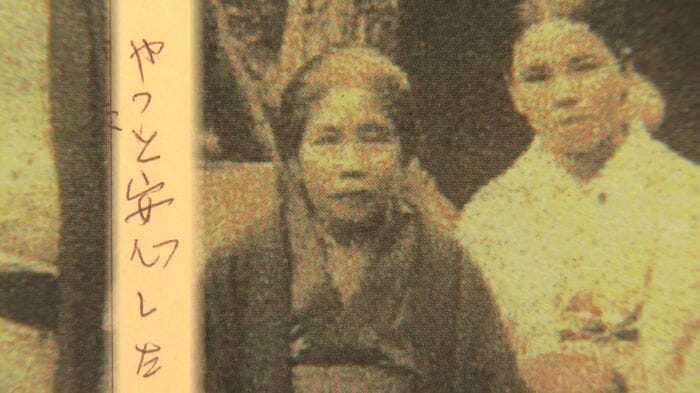 やっと安心した